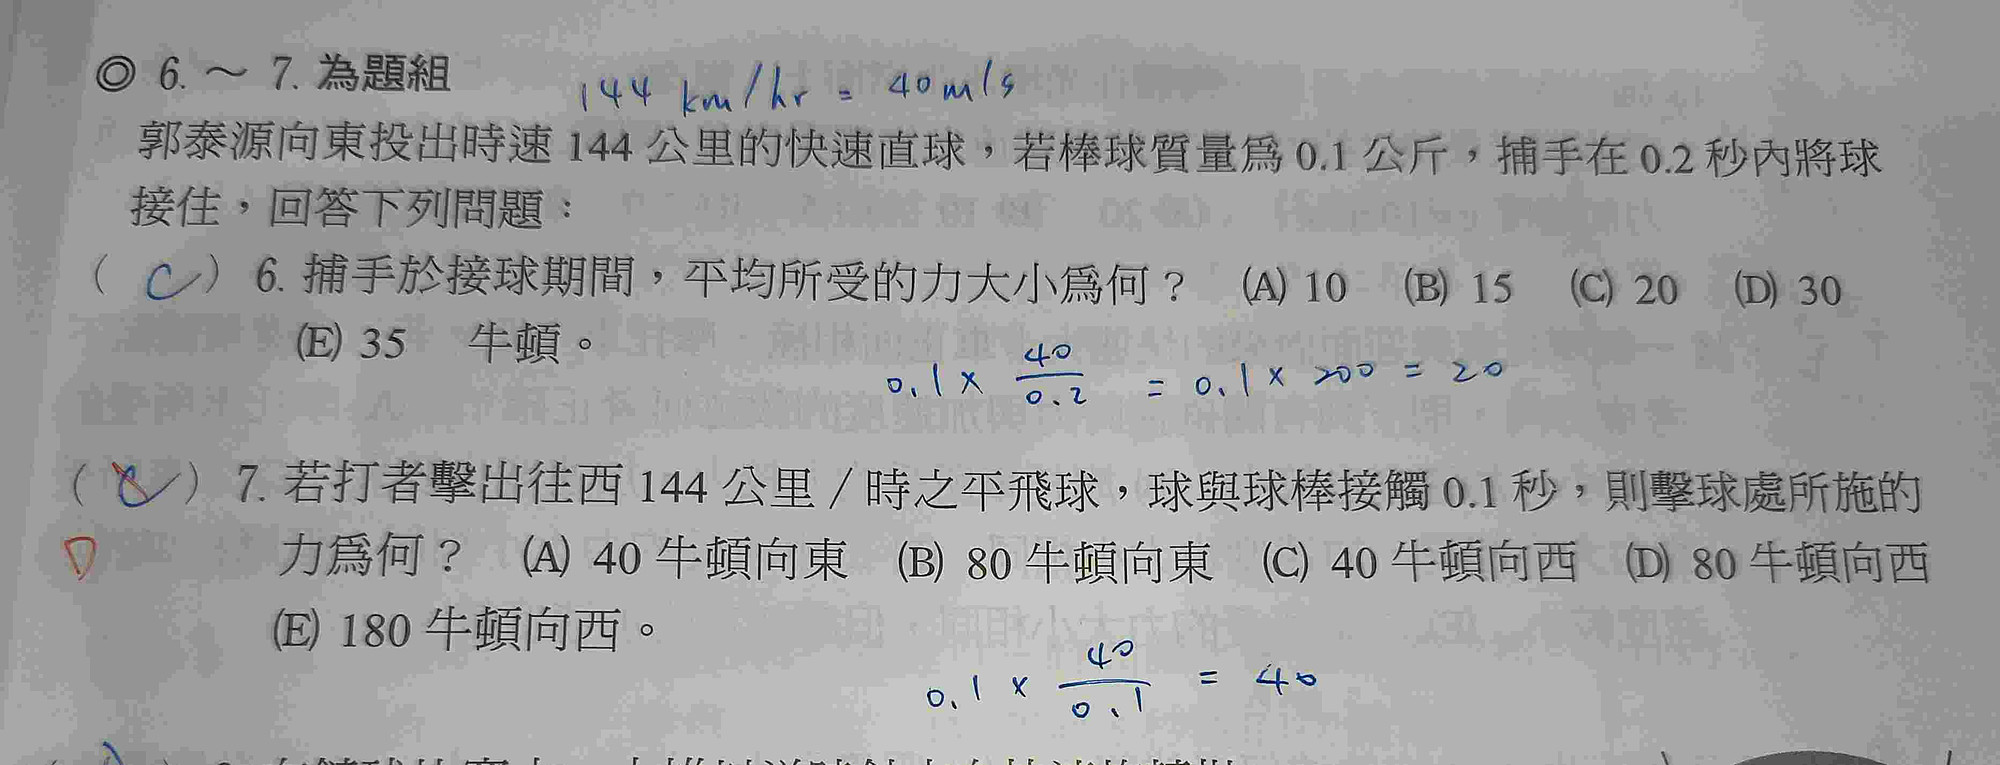 ◎ 6. ～ 7. 為題組
144 km/hr = 40m/s
郭泰源向東投出時速 144 公里的快速直球，若棒球質量爲 0.1 公斤，捕手在 0.2 秒內將球
接住，回答下列問題：
( C ) 6. 捕手於接球期間，平均所受的力大小爲何？ (A) 10 (B) 15 (C) 20 (D) 30
(E) 35 牛頓。
0.1 × 40/0.2 = 0.1 × 200 = 20
( C ) 7. 若打者擊出往西 144 公里／時之平飛球，球與球棒接觸 0.1 秒，則擊球處所施的
D 力爲何？ (A) 40 牛頓向東 (B) 80 牛頓向東 (C) 40 牛頓向西 (D) 80 牛頓向西
(E) 180 牛頓向西。
0.1 × 40/0.1 = 40